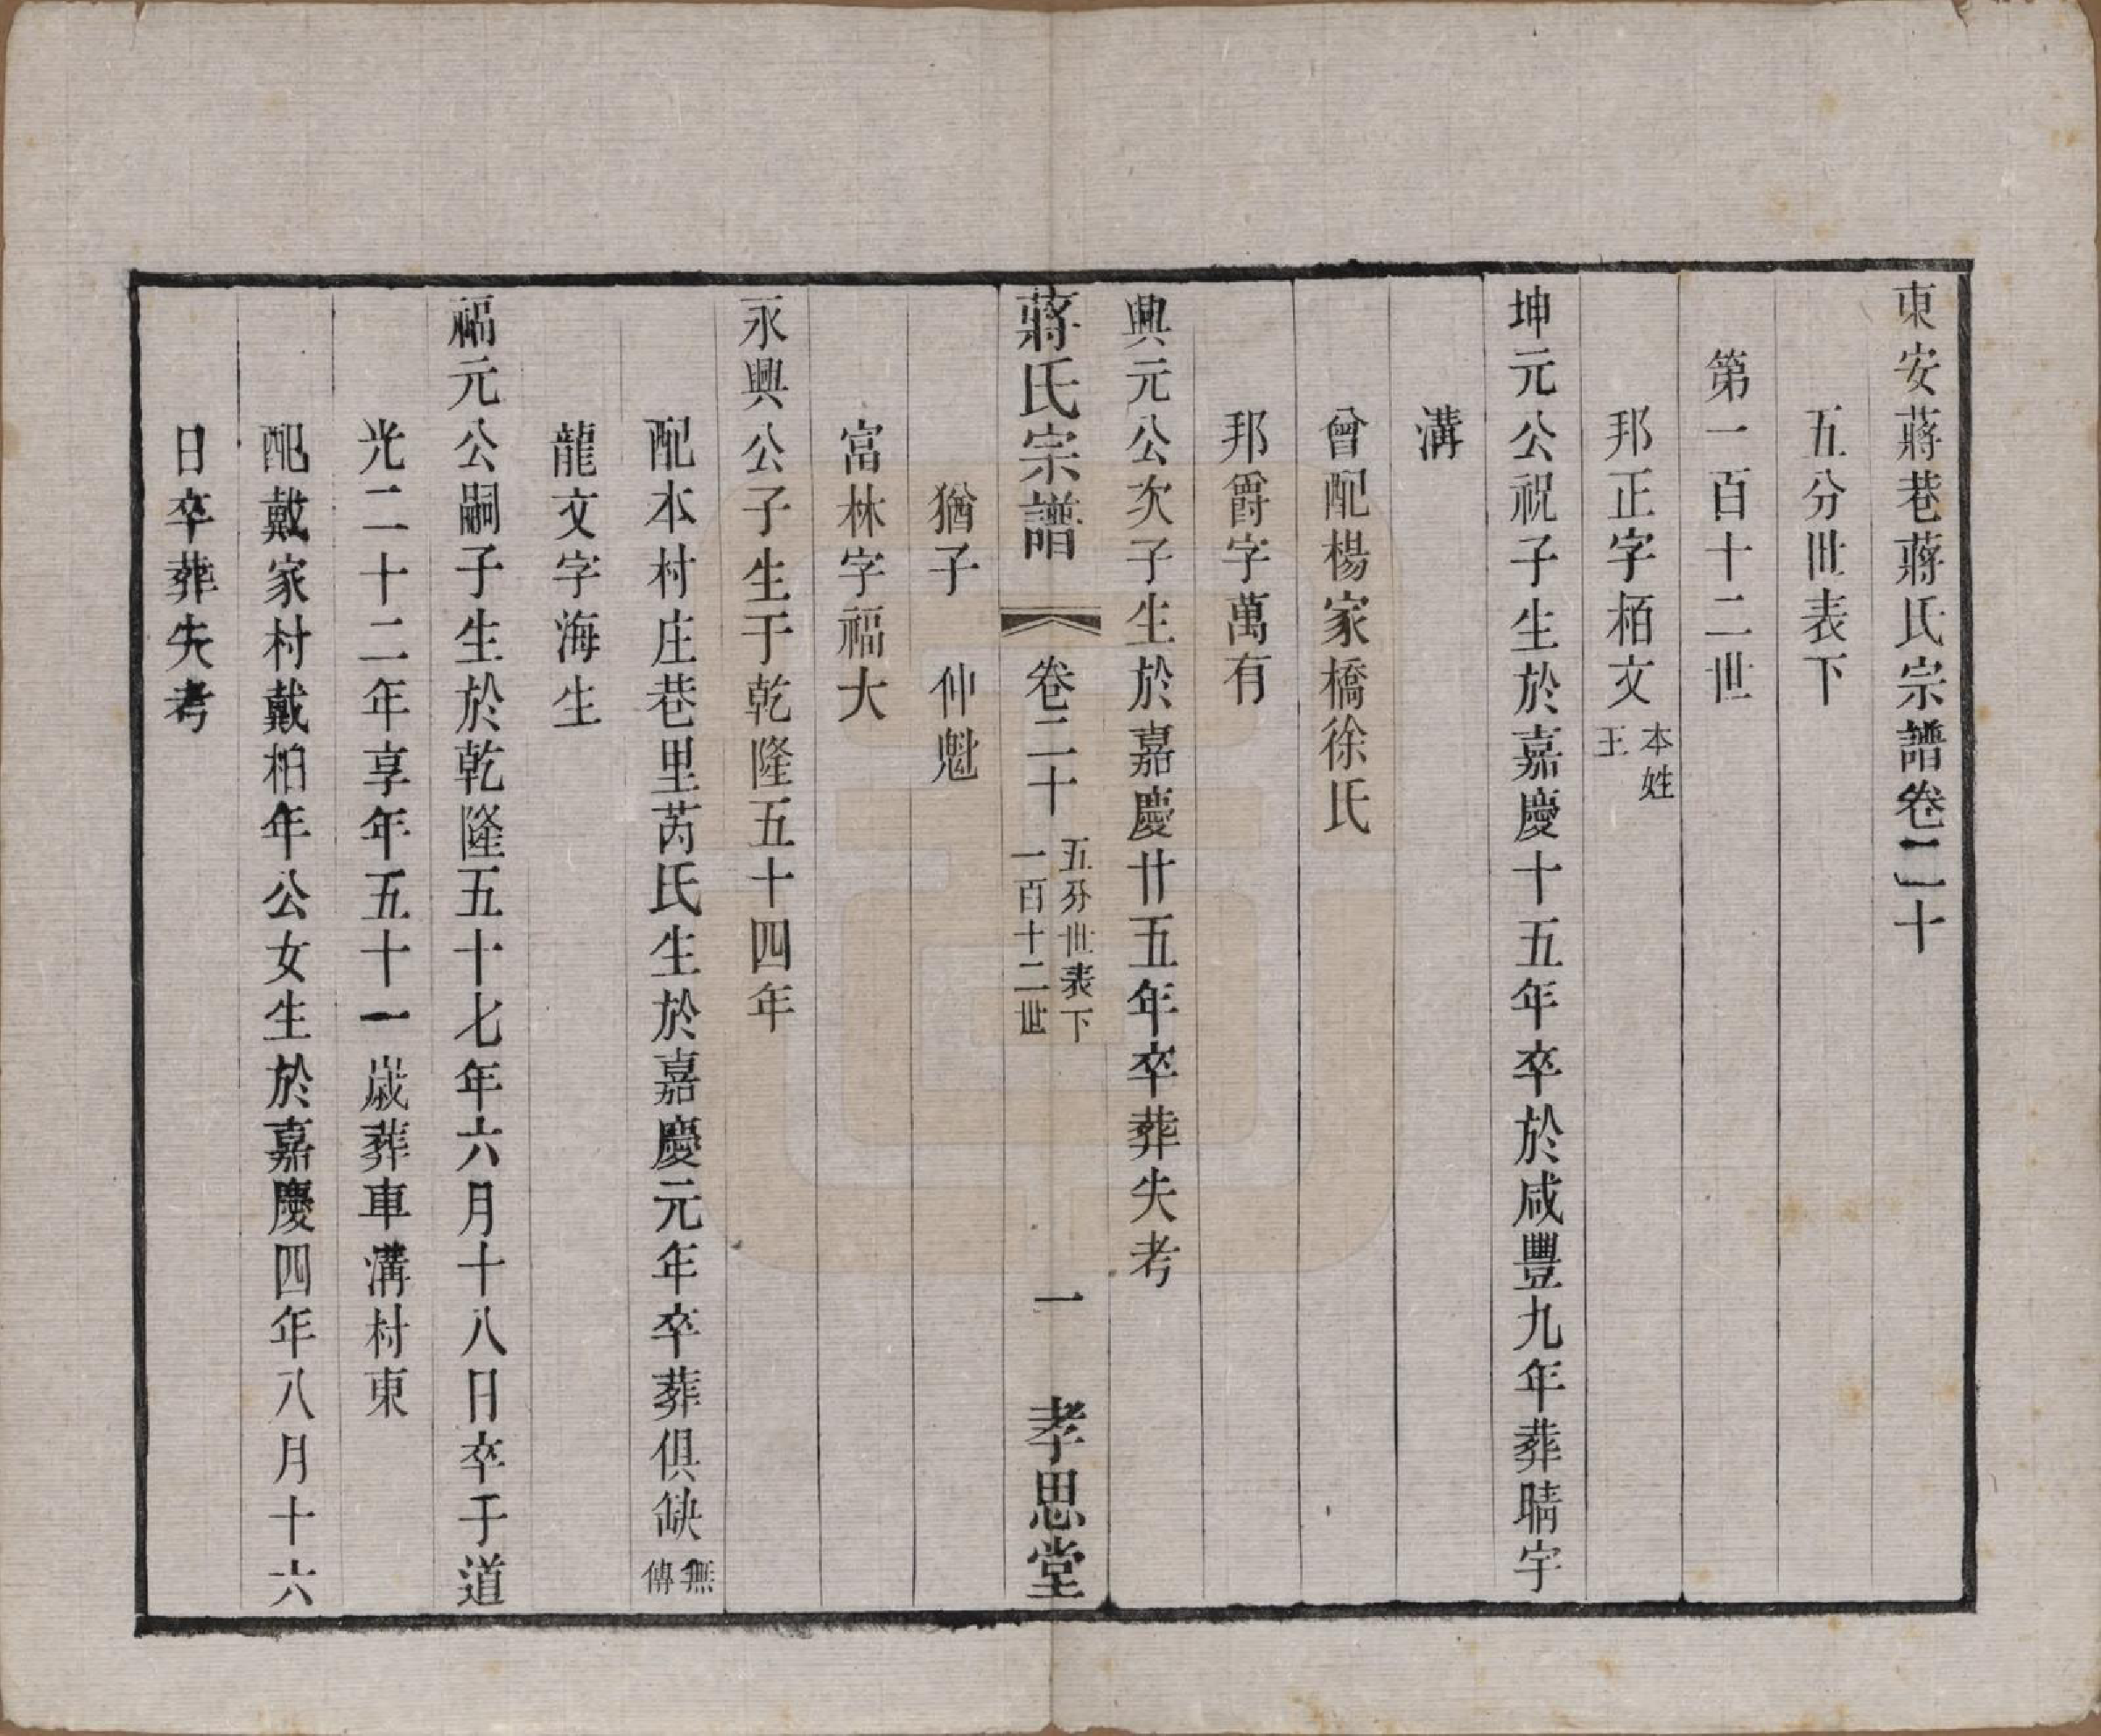 東安蔣巷蔣氏宗譜卷二十
五分世表下
第一百十二世
邦正字栢文本姓王
坤元公祝子生於嘉慶十五年卒於咸豐九年葬晴宇
溝
曾配楊家橋徐氏
邦爵字萬有
興元公次子生於嘉慶廿五年卒葬失考
蔣氏宗譜 卷二十 五分世表下 一百十二世 一 孝思堂
猶子 仲魁
富林字福大
永興公子生于乾隆五十四年
配本村庄巷里芮氏生於嘉慶元年卒葬俱缺無傳
龍文字海生
福元公嗣子生於乾隆五十七年六月十八日卒于道
光二十二年享年五十一歲葬車溝村東
配戴家村戴柏年公女生於嘉慶四年八月十六
日卒葬失考